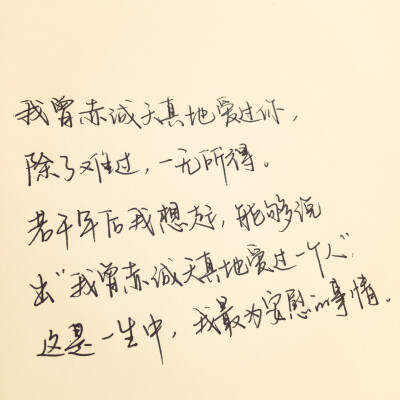 我曾赤诚天真地爱过你，
除了难过，一无所得。
若干年后我想起，能够说
出“我曾赤诚天真地爱过一个人”，
这是一生中，我最为安慰的事情。